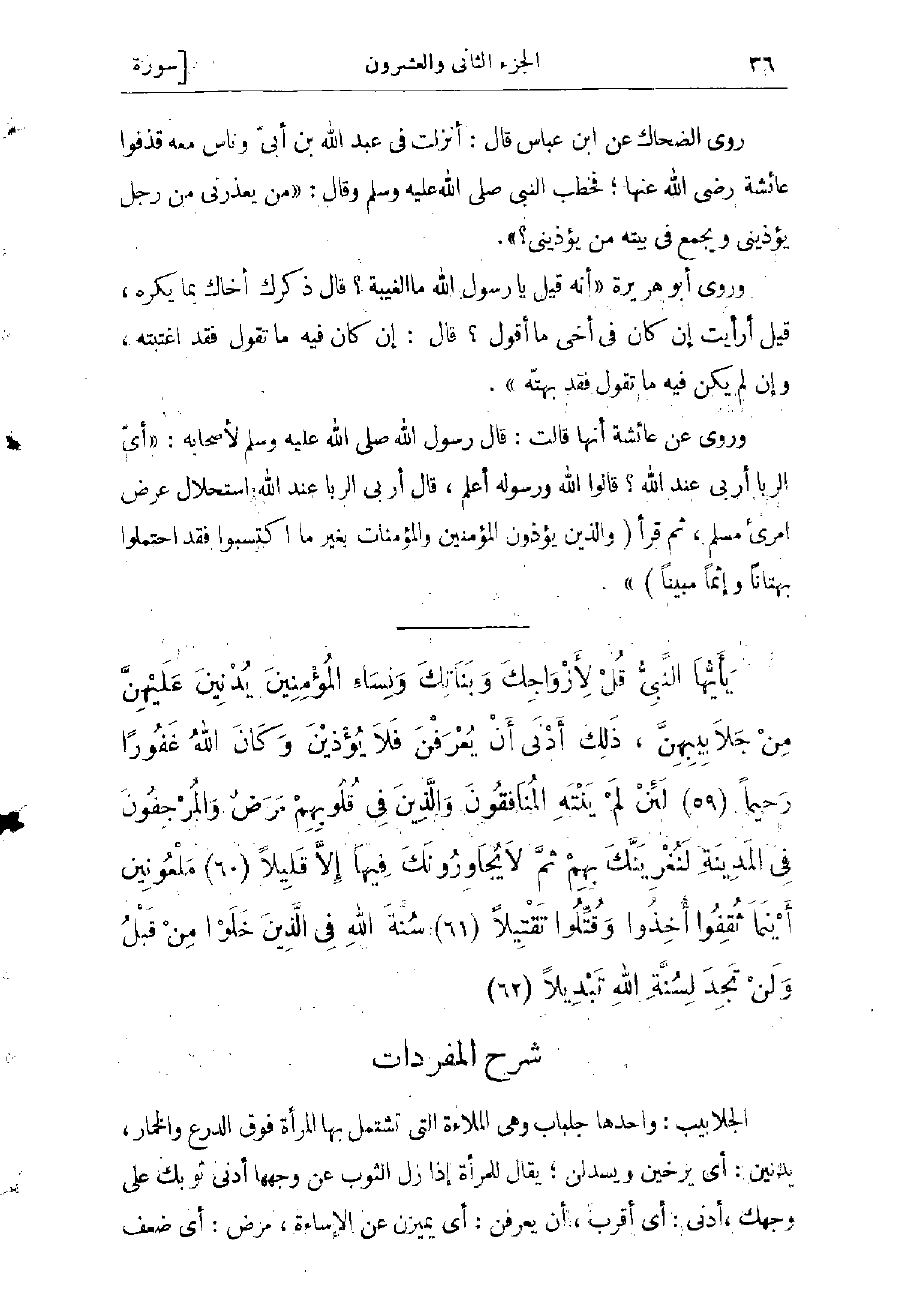 ٣٦ الجزء الثانى والعشرون [سورة
روى الضحاك عن ابن عباس قال : أنزلت فى عبد الله بن أبىّ وناس معه قذفوا
عائشة رضى الله عنها ؛ فخطب النبى صلى الله عليه وسلم وقال : «من يعذرنى من رجل
يؤذينى ويجمع فى بيته من يؤذينى؟» .
وروى أبو هريرة «أنه قيل يا رسول الله ما الغيبة ؟ قال ذكرك أخاك بما يكره ،
قيل أرأيت إن كان فى أخى ما أقول ؟ قال : إن كان فيه ما تقول فقد اغتبته ،
وإن لم يكن فيه ما تقول فقد بهتّه » .
وروى عن عائشة أنها قالت : قال رسول الله صلى الله عليه وسلم لأصحابه : «أىّ
الربا أربى عند الله ؟ قالوا الله ورسوله أعلم ، قال أربى الربا عند الله استحلال عرض
امرئ مسلم ، ثم قرأ ( والذين يؤذون المؤمنين والمؤمنات بغير ما اكتسبوا فقد احتملوا
بهتانًا وإثمًا مبينًا ) » .
يَأَيُّهَا النَّبِىُّ قُلْ لِأَزْوَاجِكَ وَبَنَاتِكَ وَنِسَاءِ الْمُؤْمِنِينَ يُدْنِينَ عَلَيْهِنَّ
مِنْ جَلَابِيبِهِنَّ ، ذَلِكَ أَدْنَى أَنْ يُعْرَفْنَ فَلَا يُؤْذَيْنَ وَكَانَ اللهُ غَفُورًا
رَحِيمًا (٥٩) لَئِنْ لَمْ يَنْتَهِ الْمُنَافِقُونَ وَالَّذِينَ فِى قُلُوبِهِمْ مَرَضٌ وَالْمُرْجِفُونَ
فِى الْمَدِينَةِ لَنُغْرِيَنَّكَ بِهِمْ ثُمَّ لَا يُجَاوِرُونَكَ فِيهَا إِلَّا قَلِيلًا (٦٠) مَلْعُونِينَ
أَيْنَمَا ثُقِفُوا أُخِذُوا وَقُتِّلُوا تَقْتِيلًا (٦١) سُنَّةَ اللهِ فِى الَّذِينَ خَلَوْا مِنْ قَبْلُ
وَلَنْ تَجِدَ لِسُنَّةِ اللهِ تَبْدِيلًا (٦٢)
شرح المفردات
الجلابيب : واحدها جلباب وهى الملاءة التى تشتمل بها المرأة فوق الدرع والخمار ،
يدنين : أى يرخين ويسدلن ؛ يقال للمرأة إذا زل الثوب عن وجهها أدنى ثوبك على
وجهك ، أدنى : أى أقرب ، أن يعرفن : أى يميزن عن الإساءة ، مرض : أى ضعف